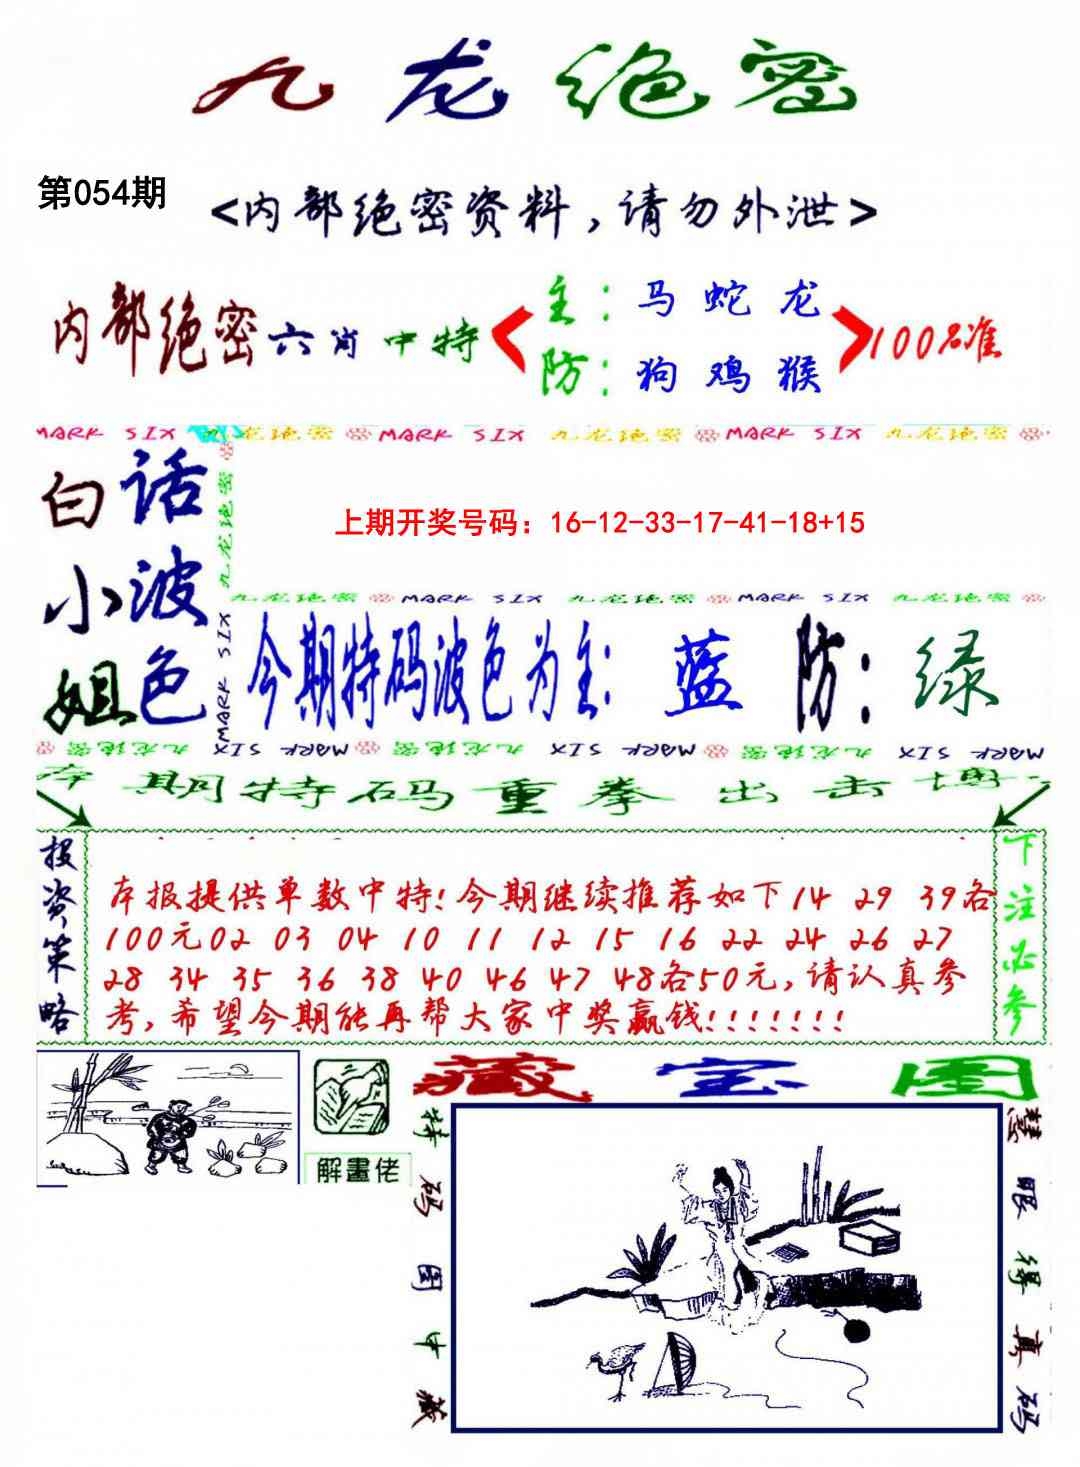 九龙绝密
第054期
<内部绝密资料,请勿外泄>
内部绝密六肖中特
主:马 蛇 龙
防:狗 鸡 猴
100%准
MARK SIX 九龙绝密 MARK SIX 九龙绝密 MARK SIX 九龙绝密
九龙绝密 MARK SIX
白小姐
话波色
上期开奖号码：16-12-33-17-41-18+15
九龙绝密 MARK SIX 九龙绝密 MARK SIX 九龙绝密
今期特码波色为主:蓝 防:绿
九龙绝密 MARK SIX 九龙绝密 MARK SIX 九龙绝密 MARK SIX
本期特码重拳出击博
投资策略
本报提供单数中特!今期继续推荐如下14 29 39各
100元02 03 04 10 11 12 15 16 22 24 26 27
28 34 35 36 38 40 46 47 48各50元,请认真参
考,希望今期能再帮大家中奖赢钱!!!!!!!
下注必参
解畫佬
藏宝图
特码图中藏
慧眼得真码